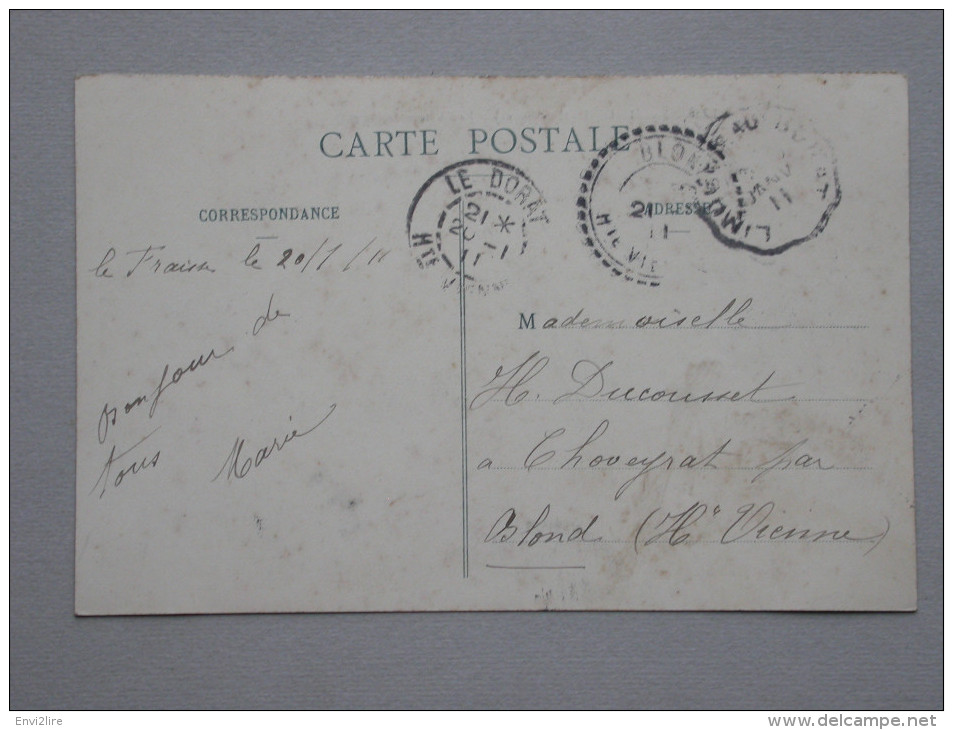 CARTE POSTALE
CORRESPONDANCE
ADRESSE
LE DORAT
21
11
HTE VIENNE
BLOND
21
11
HTE VIE
LIMOGES AU DORAT
JANV
11
le Fraisse le 20/1/11
Bonjour de
tous
Marie
Mademoiselle
H. Ducousset
a Choveyrat par
Blond (Hte Vienne)
Envi2lire
www.delcampe.net